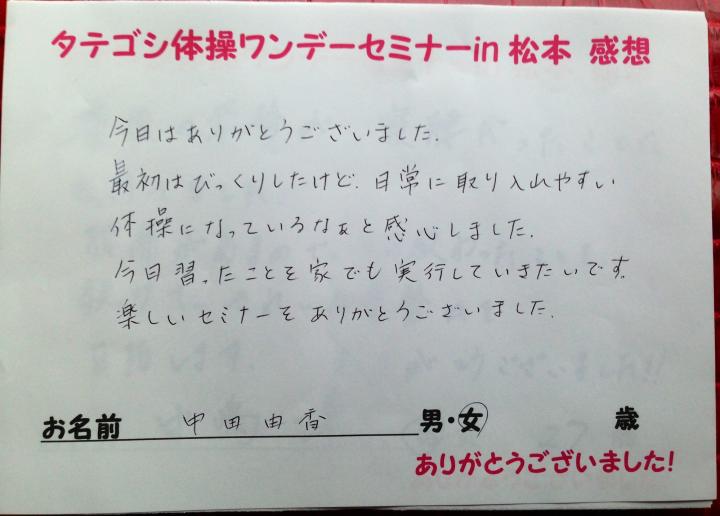 タテゴシ体操ワンデーセミナーin 松本 感想
今日はありがとうございました.
最初はびっくりしたけど、日常に取り入れやすい
体操になっているなぁと感心しました.
今日習ったことを家でも実行していきたいです.
楽しいセミナーをありがとうございました.
お名前 中田由香 男・女 歳
ありがとうございました!